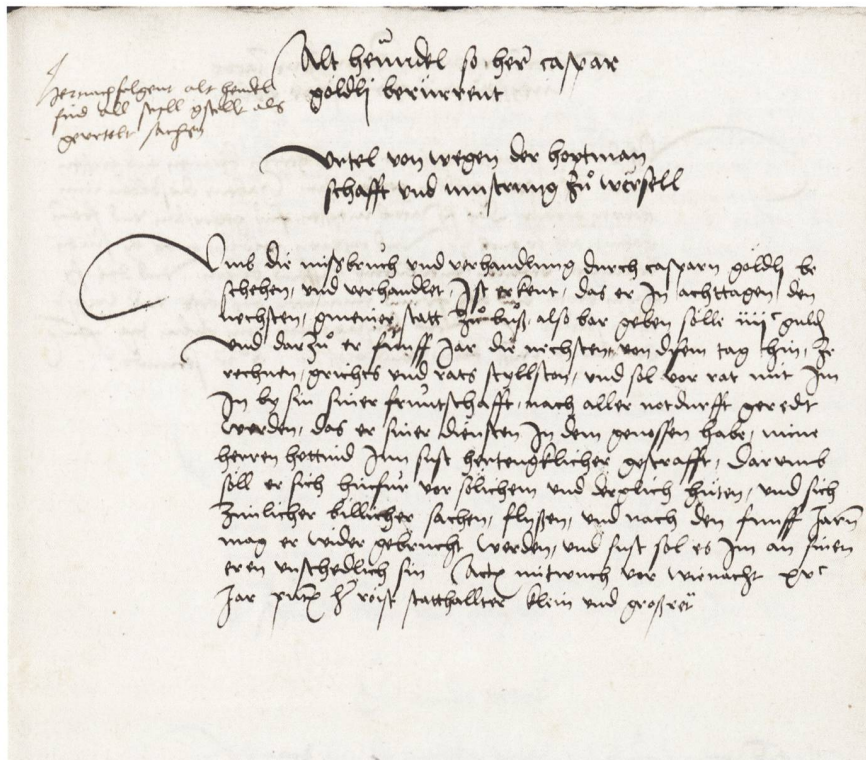 Alt henndel so her caspar
göldlj berürrent
Hernachfolgent alt hendel
sind all styll gstellt als
gevertelt sachen
Vrtel von wegen der hoptman
schafft vnd mustrung zů werſell
Vmb die mißbruch vnd verhandlung durch casparn göldlj be
schehen, vnd verhandlet, Ist erkent, das er In achttagen den
nechsten, gmeiner statt zů bůß, also bar geben sölle iiijc guld
Vnd darzů er fünff Jar die nechsten von disem tag hin, ze
rechnen, grichts vnd rats styllston, vnd sol vor rat mit Im
In by sin siner fruntschafft, nach aller notdurfft geredt
werden, das er siner diensten In dem genossen habe, mine
herren hettind Inn sust hertengklicher gestrafft, darumb
söll er sich hinfür vor solichem vnd derglich hüten, vnd sich
zimlicher billicher sachen, flyßen, vnd nach den fünff Jarn
mag er wider gebrucht werden, vnd sust sol es Im an sinen
eren vnschedlich sin Actum mitwuch vor wienacht xvc
Jar her röist statthallter klein vnd groß ret